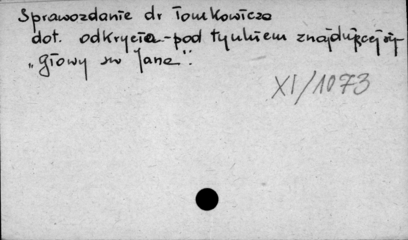 Sprawozdanie dr Tomkowicza
dot. odkrycia - pod tynkiem znajdującej się
"głowy św Jana".
XI/1073